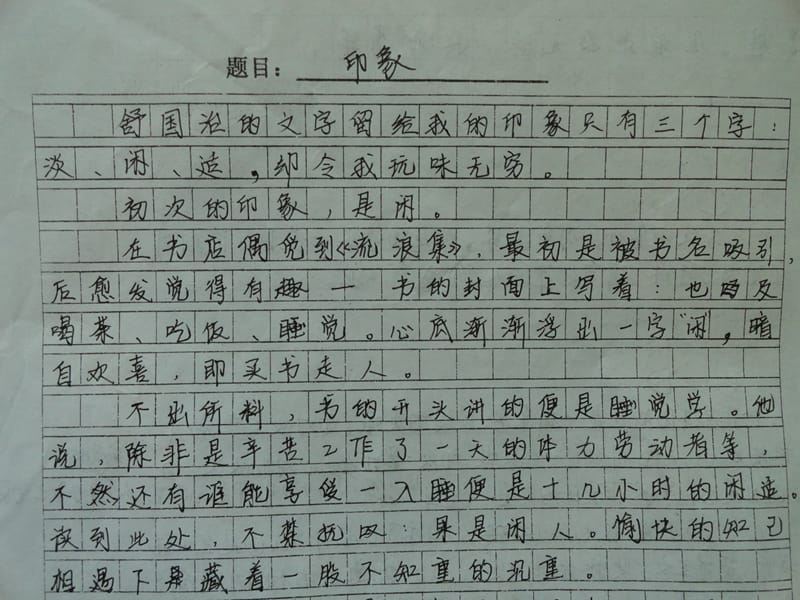 题目：印象
舒国治的文字留给我的印象只有三个字：
淡、闲、适，却令我玩味无穷。
初次的印象，是闲。
在书店偶觅到《流浪集》，最初是被书名吸引，
后愈发觉得有趣—书的封面上写着：也及
喝茶、吃饭、睡觉。心底渐渐浮出一字"闲"，暗
自欢喜，即买书走人。
不出所料，书的开头讲的便是睡觉学。他
说，除非是辛苦工作了一天的体力劳动者等，
不然还有谁能享受一入睡便是十几小时的闲适。
读到此处，不禁抚叹：果是闲人。愉快的知己
相遇下是藏着一股不知重的沉重。